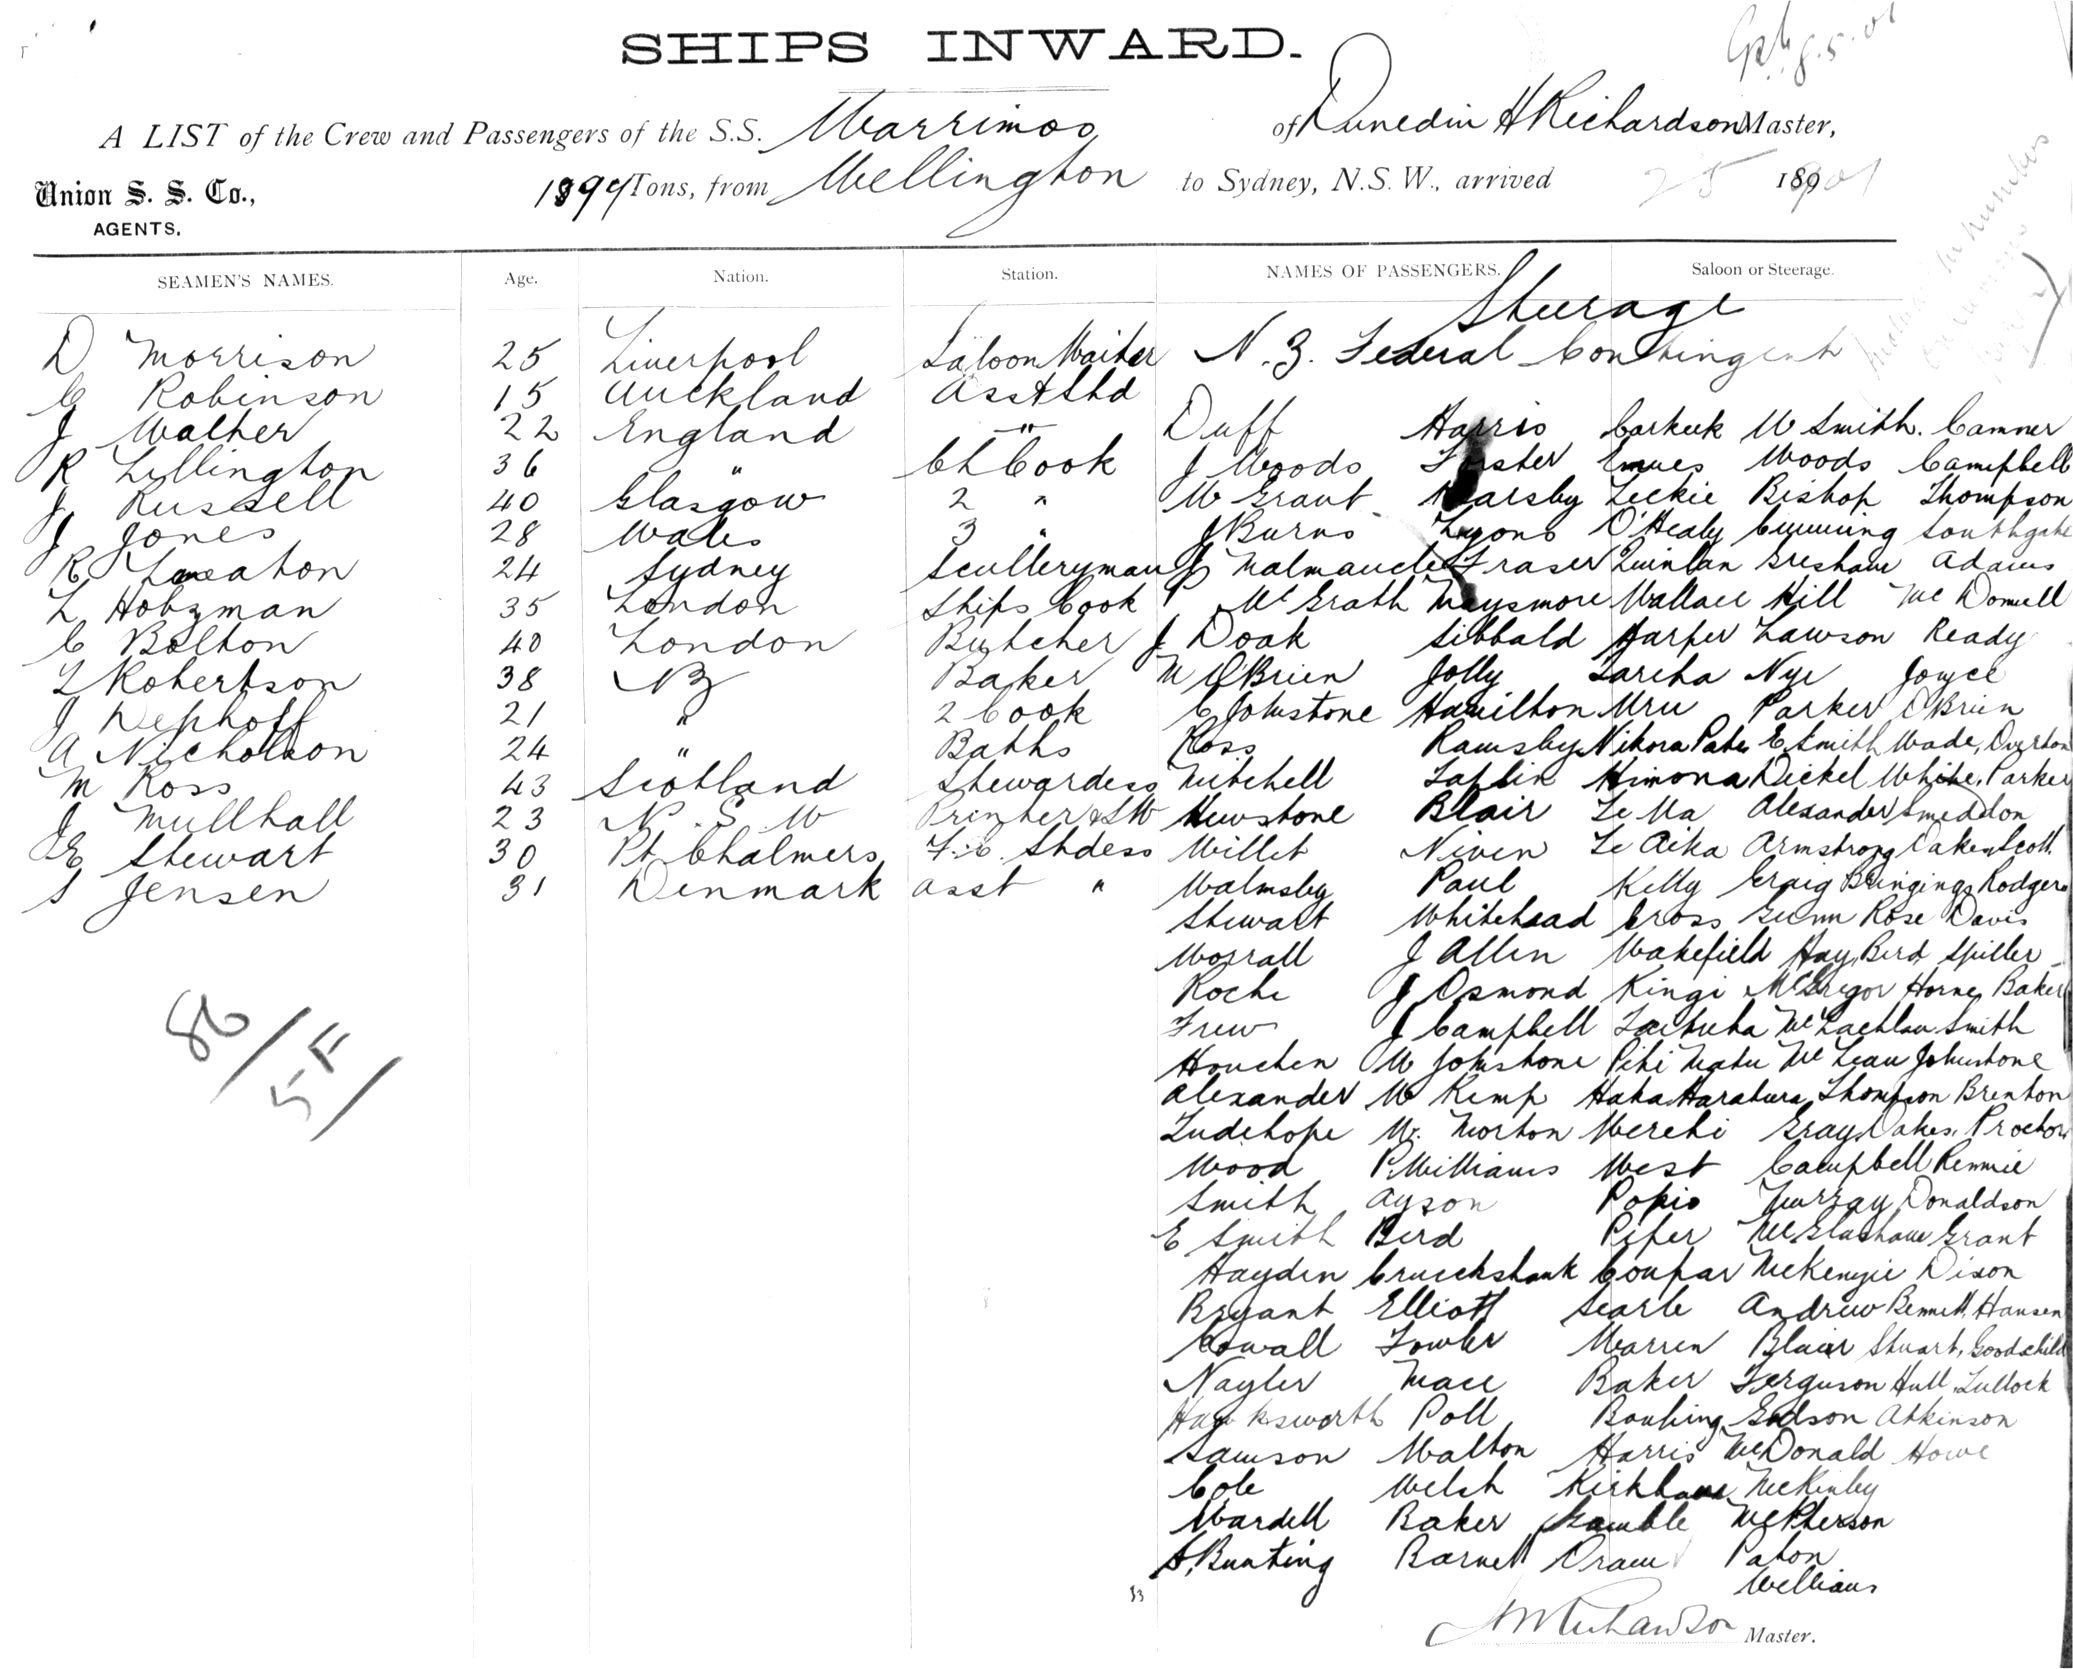 SHIPS INWARD.
A LIST of the Crew and Passengers of the S.S. Warrimoo of Dunedin H Richardson Master,
Union S. S. Co., AGENTS.
Tons, from Wellington to Sydney, N.S.W., arrived 25 1901
SEAMEN'S NAMES. Age. Nation. Station. NAMES OF PASSENGERS. Saloon or Steerage.
Steerage
D Morrison 25 Liverpool Saloon Waiter N.Z. Federal Contingent
C Robinson 15 Auckland Asst Std
J Walker 22 England " Duff Harris Carkeek W Smith. Camner
R Lillington 36 " Ch Cook J Woods Forster Emues Woods Campbell
J Russell 40 Glasgow 2 " W Grant Leckie Bishop Thompson
J Jones 28 Wales 3 " J Burns Lyons O'Healy Cumming Southgate
R 24 Sydney Sculleryman Fraser Quinlan Gresham Adams
L Hobzman 35 London Ships Cook McGrath Maysmore Wallace Hill McDonnell
C Bolton 40 London Butcher J Doak Sibbald Harper Lawson Ready
L Robertson 38 NZ Baker M O'Brien Jolly Tareha Nye Joyce
J Dephoff 21 " 2 Cook C Johnstone Hamilton Uru Parker O'Brien
A Nicholson 24 " Baths Ross Ramsby Nikora E. Smith Wade, Overton
M Ross 43 Scotland Stewardess Mitchell Taplin Himona Dickel White, Parker
J Mullhall 23 N.S.W Printer & SW Hewstone Blair Te Ua Alexander Smeddon
E Stewart 30 Pt Chalmers F.C. Stdess Willet Niven Te Aika Armstrong Oakes, Scott
S Jensen 31 Denmark Asst " Walmsby Paul Kelly Craig Rodgers
Stewart Whitehead Cross Gunn Rose Davis
Worrall J Allen Wakefield Hay, Bird, Spiller
Roche J Osmond Kingi McGregor Horne, Baker
Frew J Campbell McLachlan Smith
Houchen W Johnstone McLean Johnstone
Alexander W Kemp Thompson Brenton
Tudehope W. Morton Werehi Gray, Oakes, Proctor
Wood P. Williams West Campbell Rennie
Smith Ayson Popio Murray Donaldson
E Smith Bird Piper McGlashan Grant
Hayden Cruickshank Coupar McKenzie Dixon
Bryant Elliott Searle Andrew Bennett, Hansen
Cowall Fowler Warren Blair Stuart, Goodchild
Nayler Mace Baker Ferguson Hull, Tullock
Hawksworth Poll Godson Atkinson
Samson Walton Harris McDonald Howe
Cole Welsh McKinley
Wardell Baker Gamble McPherson
S. Bunting Barnett Oram Paton
Williams
Master.